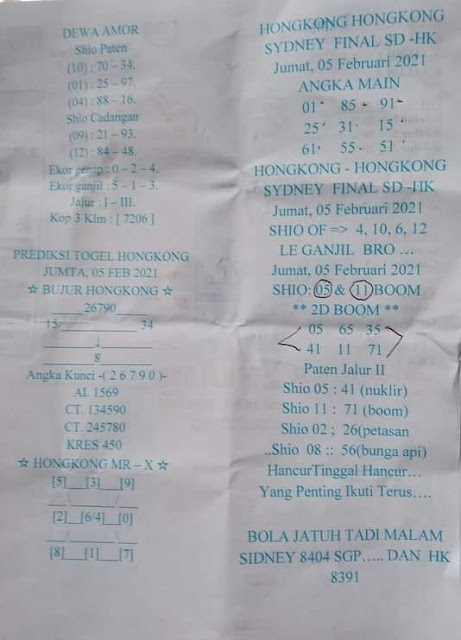 DEWA AMOR
Shio Paten
(10) : 70 – 34.
(01) : 25 – 97.
(04) : 88 – 16.
Shio Cadangan
(09) : 21 – 93.
(12) : 84 – 48.
Ekor genap : 0 – 2 – 4.
Ekor ganjil : 5 – 1 – 3.
Jalur : I – III.
Kop 3 Klm : [ 7206 ]
PREDIKSI TOGEL HONGKONG
JUMTA, 05 FEB 2021
☆ BUJUR HONGKONG ☆
26790
15 34
↓
8
Angka Kunci -( 2 6 7 9 0 )-
AI. 1569
CT. 134590
CT. 245780
KRES 450
☆ HONGKONG MR – X ☆
[5]___[3]___[9]
[2]__[6/4]__[0]
[8]___[1]___[7]
HONGKONG HONGKONG
SYDNEY FINAL SD -HK
Jumat, 05 Februari 2021
ANGKA MAIN
01 85 91
25 31 15
61 55 51
HONGKONG - HONGKONG
SYDNEY FINAL SD -HK
Jumat, 05 Februari 2021
SHIO OF => 4, 10, 6, 12
LE GANJIL BRO …
Jumat, 05 Februari 2021
SHIO: 05 & 11 BOOM
** 2D BOOM **
05 65 35
41 11 71
Paten Jalur II
Shio 05 : 41 (nuklir)
Shio 11 : 71 (boom)
Shio 02 ; 26(petasan
..Shio 08 :: 56(bunga api)
HancurTinggal Hancur…
Yang Penting Ikuti Terus….
BOLA JATUH TADI MALAM
SIDNEY 8404 SGP….. DAN HK
8391